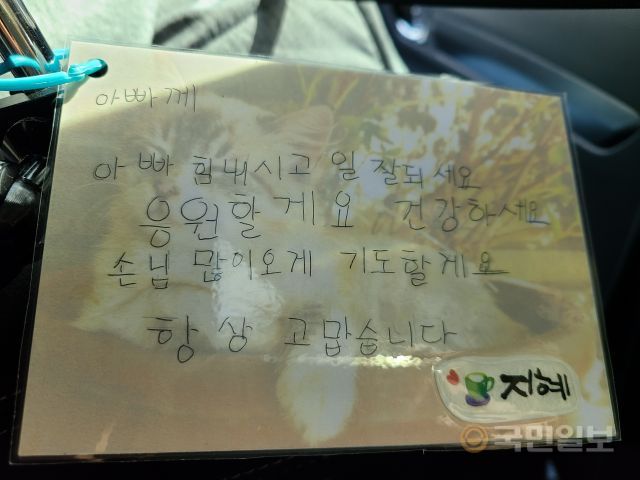 아빠께
아빠 힘내시고 일 잘되세요
응원할게요 건강하세요
손님 많이오게 기도할게요
항상 고맙습니다
지혜
국민일보